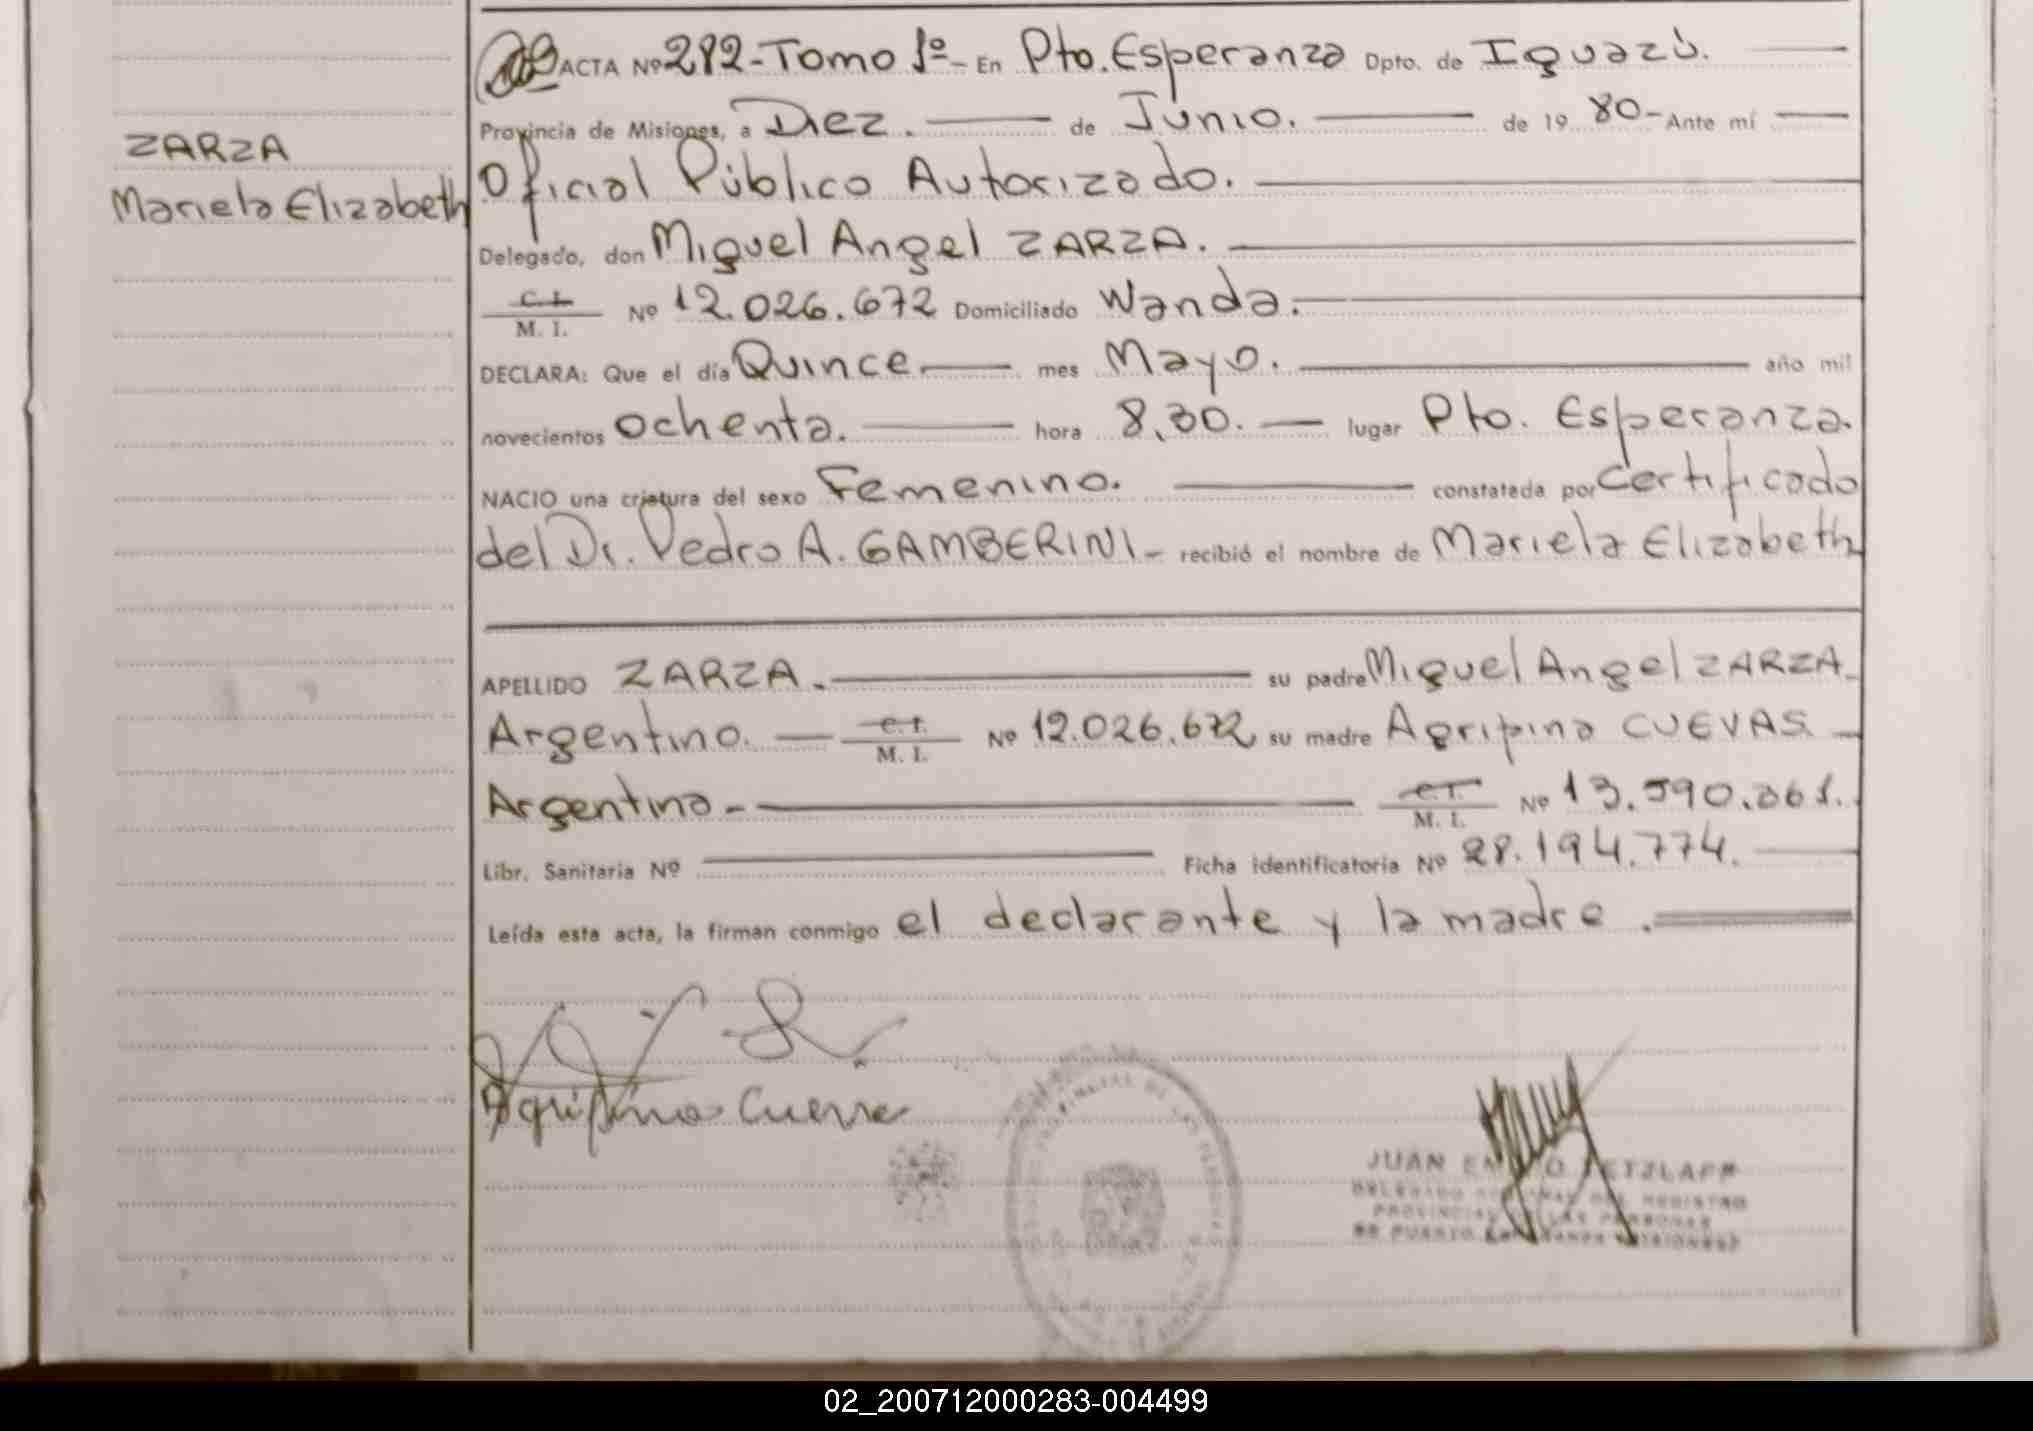 ZARZA
Mariela Elizabeth
ACTA Nº 282-Tomo 1º- En Pto. Esperanza Dpto. de Iguazú.
Provincia de Misiones, a Diez. de Junio. de 19 80- Ante mí
Oficial Público Autorizado.
Delegado, don Miguel Angel ZARZA.
C. I.
M. I. Nº 12.026.672 Domiciliado Wanda.
DECLARA: Que el día Quince mes Mayo. año mil
novecientos ochenta. hora 8,30. lugar Pto. Esperanza.
NACIO una criatura del sexo Femenino. constatada por Certificado
del Dr. Pedro A. GAMBERINI- recibió el nombre de Mariela Elizabeth
APELLIDO ZARZA. su padre Miguel Angel ZARZA-
Argentino. C. I. M. I. Nº 12.026.672 su madre Agripina CUEVAS
Argentina- C. I. M. I. Nº 13.590.361.
Libr. Sanitaria Nº Ficha identificatoria Nº 28.194.774.
Leída esta acta, la firman conmigo el declarante y la madre.
Agripina
JUAN
DELEGADO DEL REGISTRO
PROVINCIAL DE LAS PERSONAS
02_200712000283-004499